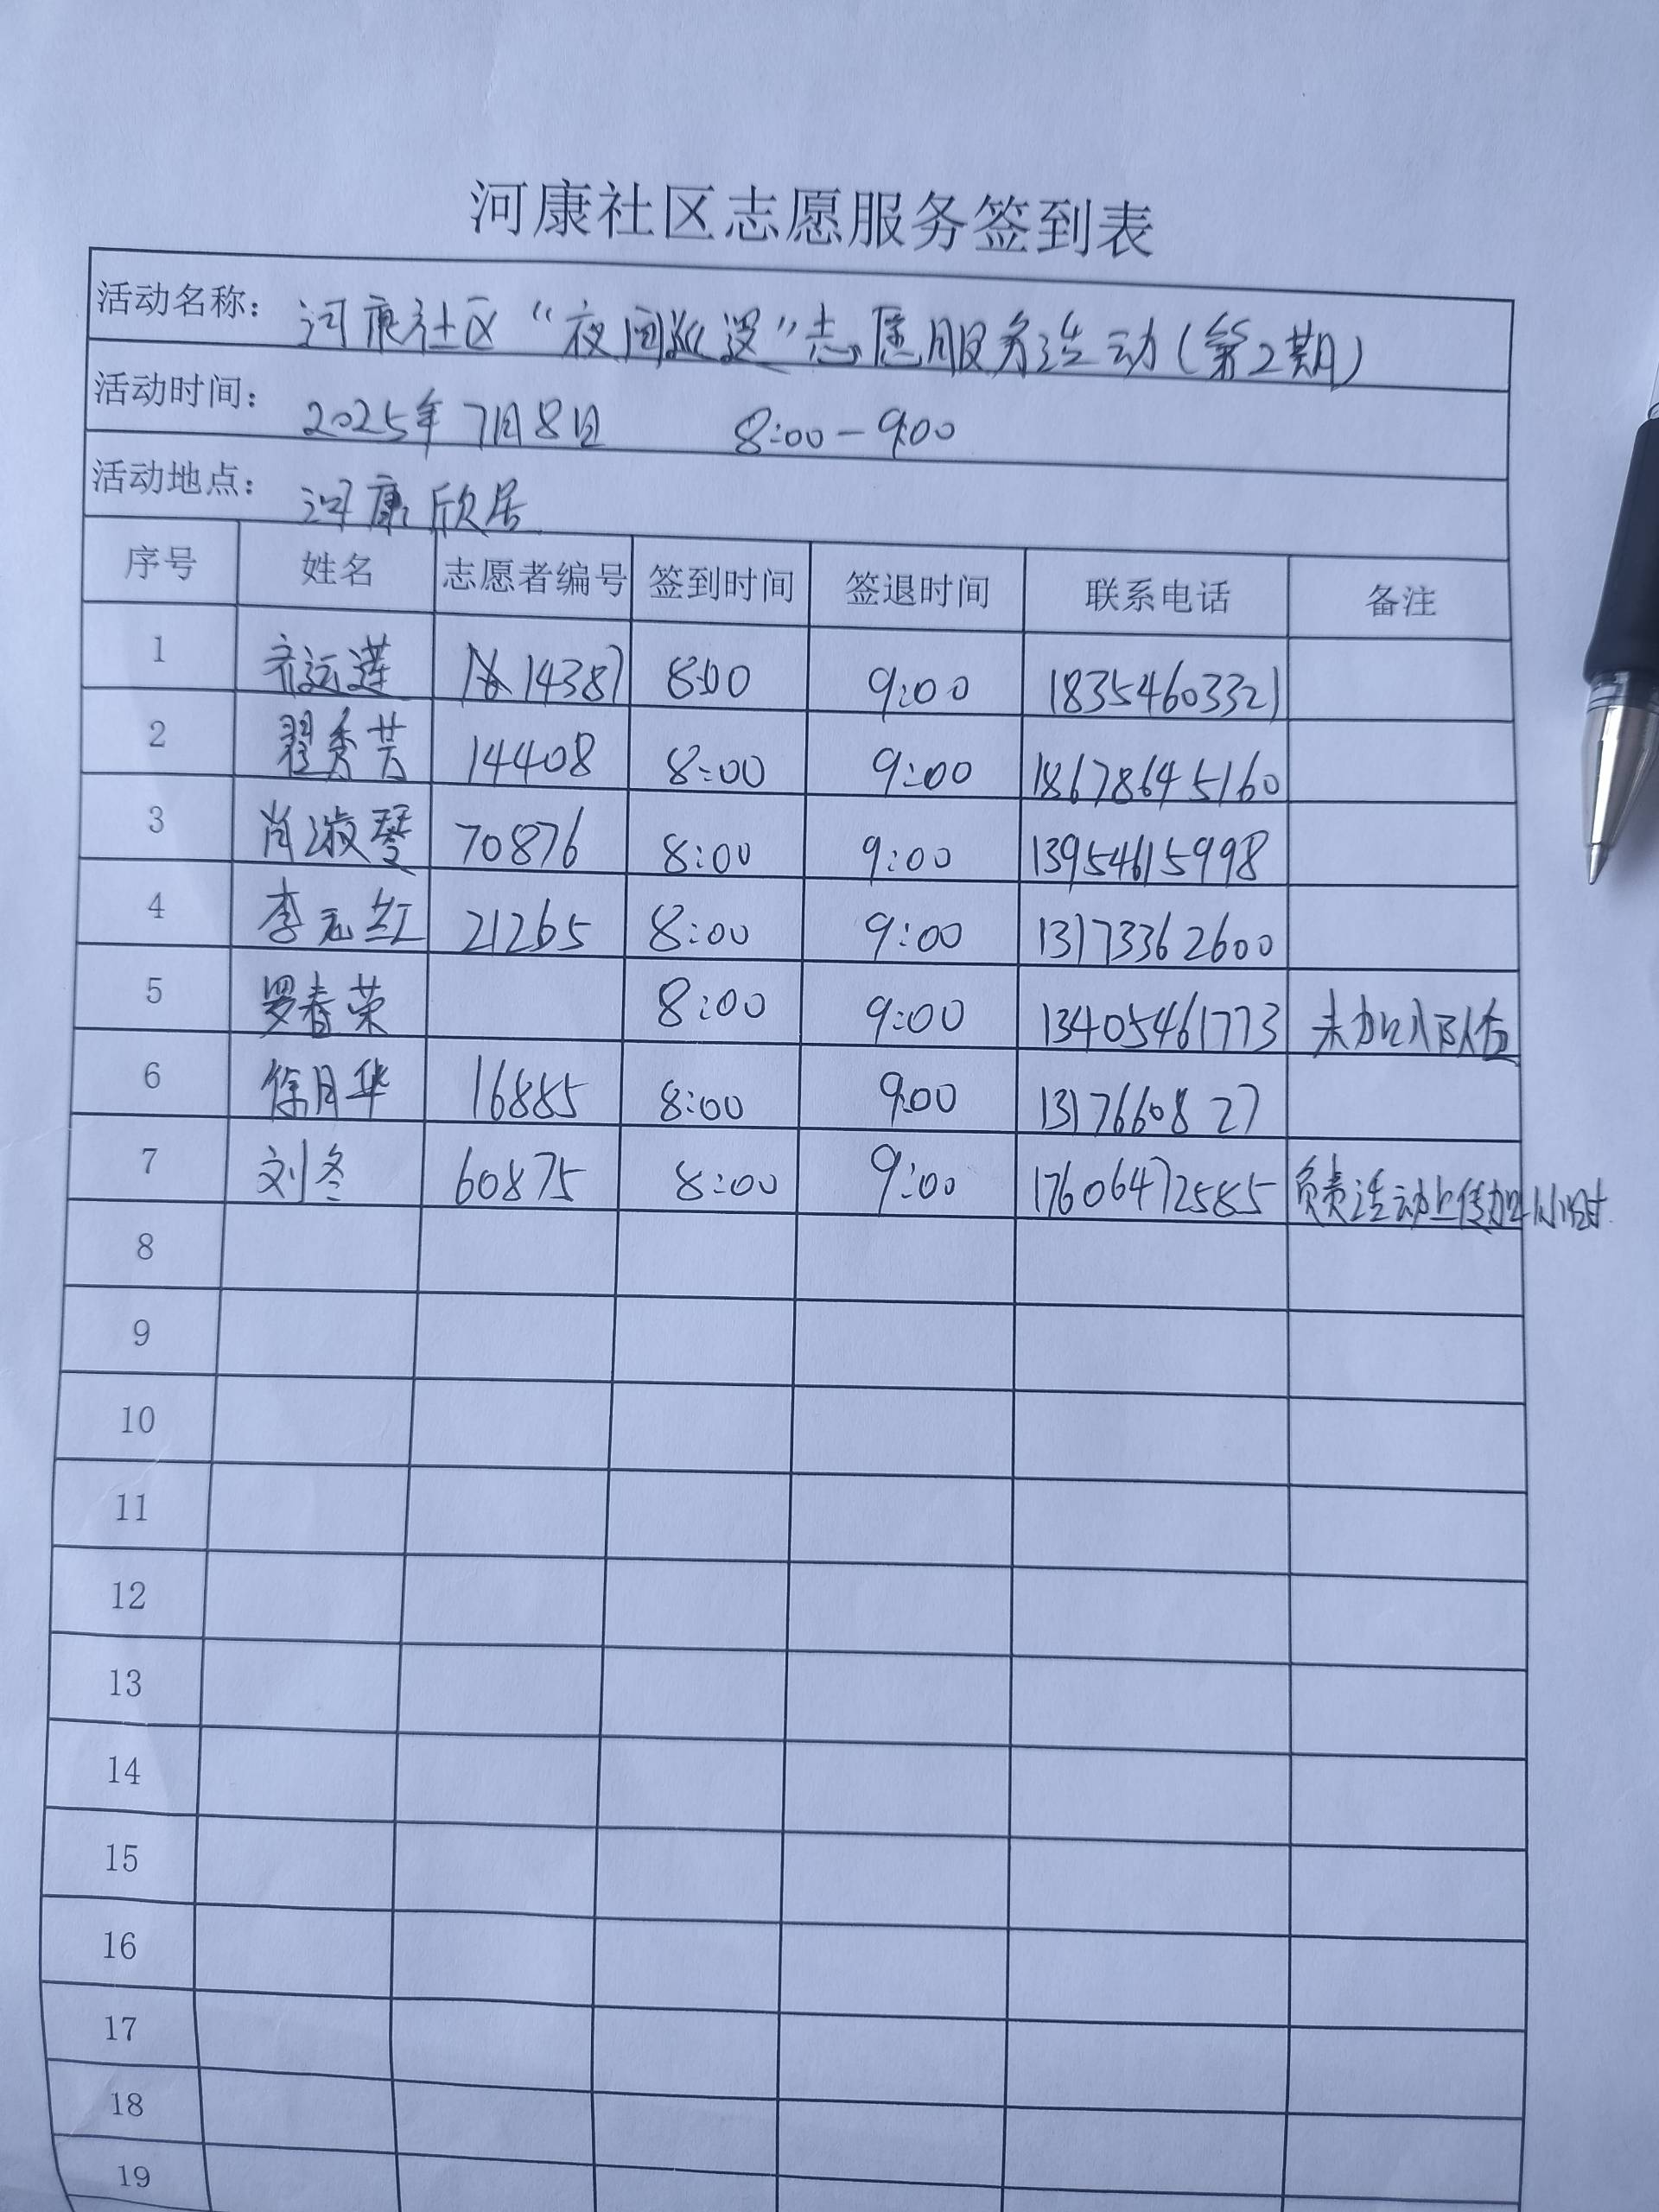 河康社区志愿服务签到表
活动名称: 河康社区“夜间巡逻”志愿服务活动(第2期)
活动时间: 2025年7月8日 8:00-9:00
活动地点: 河康欣居
序号 姓名 志愿者编号 签到时间 签退时间 联系电话 备注
1 齐运莲 14387 8:00 9:00 18354603321
2 翟秀芸 14408 8:00 9:00 18678645160
3 肖淑琴 70876 8:00 9:00 13954615998
4 李元红 21265 8:00 9:00 13173362600
5 罗春荣 8:00 9:00 13405461773 未加入队伍
6 徐月华 16885 8:00 9:00 13176608 27
7 刘冬 60875 8:00 9:00 17606472585 负责活动上传加1小时
8
9
10
11
12
13
14
15
16
17
18
19